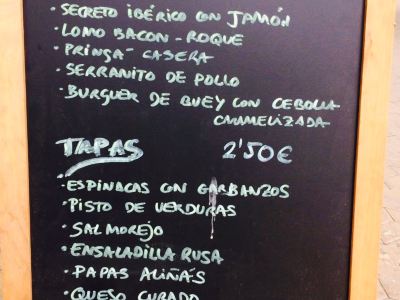 · SECRETO IBÉRICO CON JAMÓN
· LOMO BACON - ROQUE
· PRINGÁ CASERA
· SERRANITO DE POLLO
· BURGUER DE BUEY CON CEBOLLA
CARAMELIZADA
TAPAS 2'50€
· ESPINACAS CON GARBANZOS
· PISTO DE VERDURAS
· SALMOREJO
· ENSALADILLA RUSA
· PAPAS ALIÑÁS
· QUESO CURADO